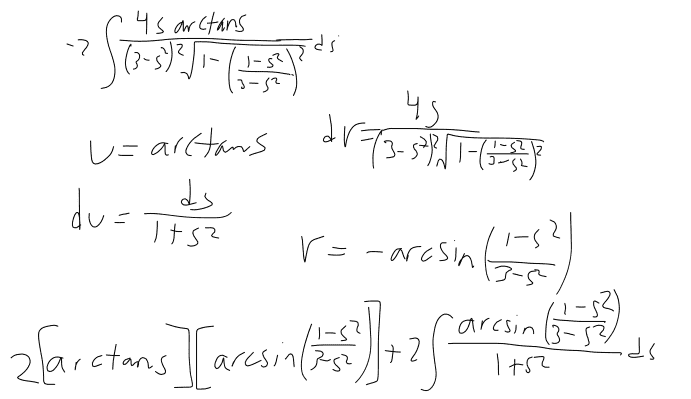 -2 ∫ \frac{4s arctans}{(3-s^2)^2 \sqrt{1-(\frac{1-s^2}{3-s^2})^2}} ds
u = arctans
dv = \frac{4s}{(3-s^2)^2 \sqrt{1-(\frac{1-s^2}{3-s^2})^2}}
du = \frac{ds}{1+s^2}
v = -arcsin(\frac{1-s^2}{3-s^2})
2[arctans][arcsin(\frac{1-s^2}{3-s^2})] + 2 ∫ \frac{arcsin(\frac{1-s^2}{3-s^2})}{1+s^2} ds